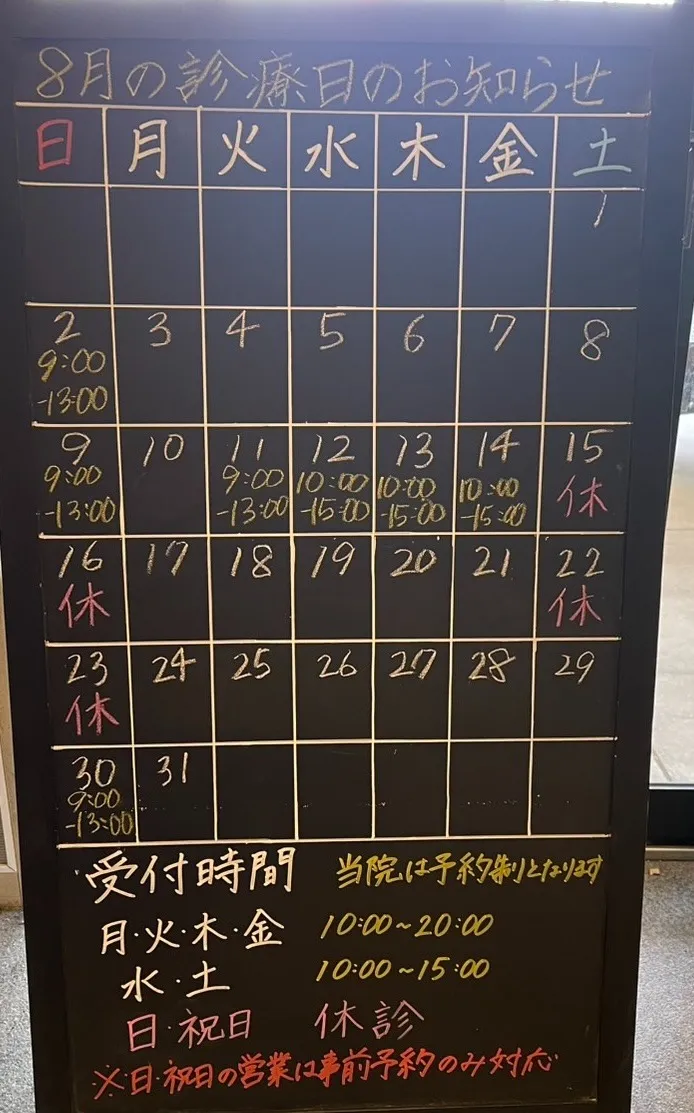 8月の診療日のお知らせ
日 月 火 水 木 金 土
1
2 3 4 5 6 7 8
9:00
-13:00
9 10 11 12 13 14 15
9:00 9:00 10:00 10:00 10:00 休
-13:00 -13:00 -15:00 -15:00 -15:00
16 17 18 19 20 21 22
休 休
23 24 25 26 27 28 29
休
30 31
9:00
-13:00
受付時間 当院は予約制となります
月・火・木・金 10:00~20:00
水・土 10:00~15:00
日・祝日 休診
※日・祝日の営業は事前予約のみ対応